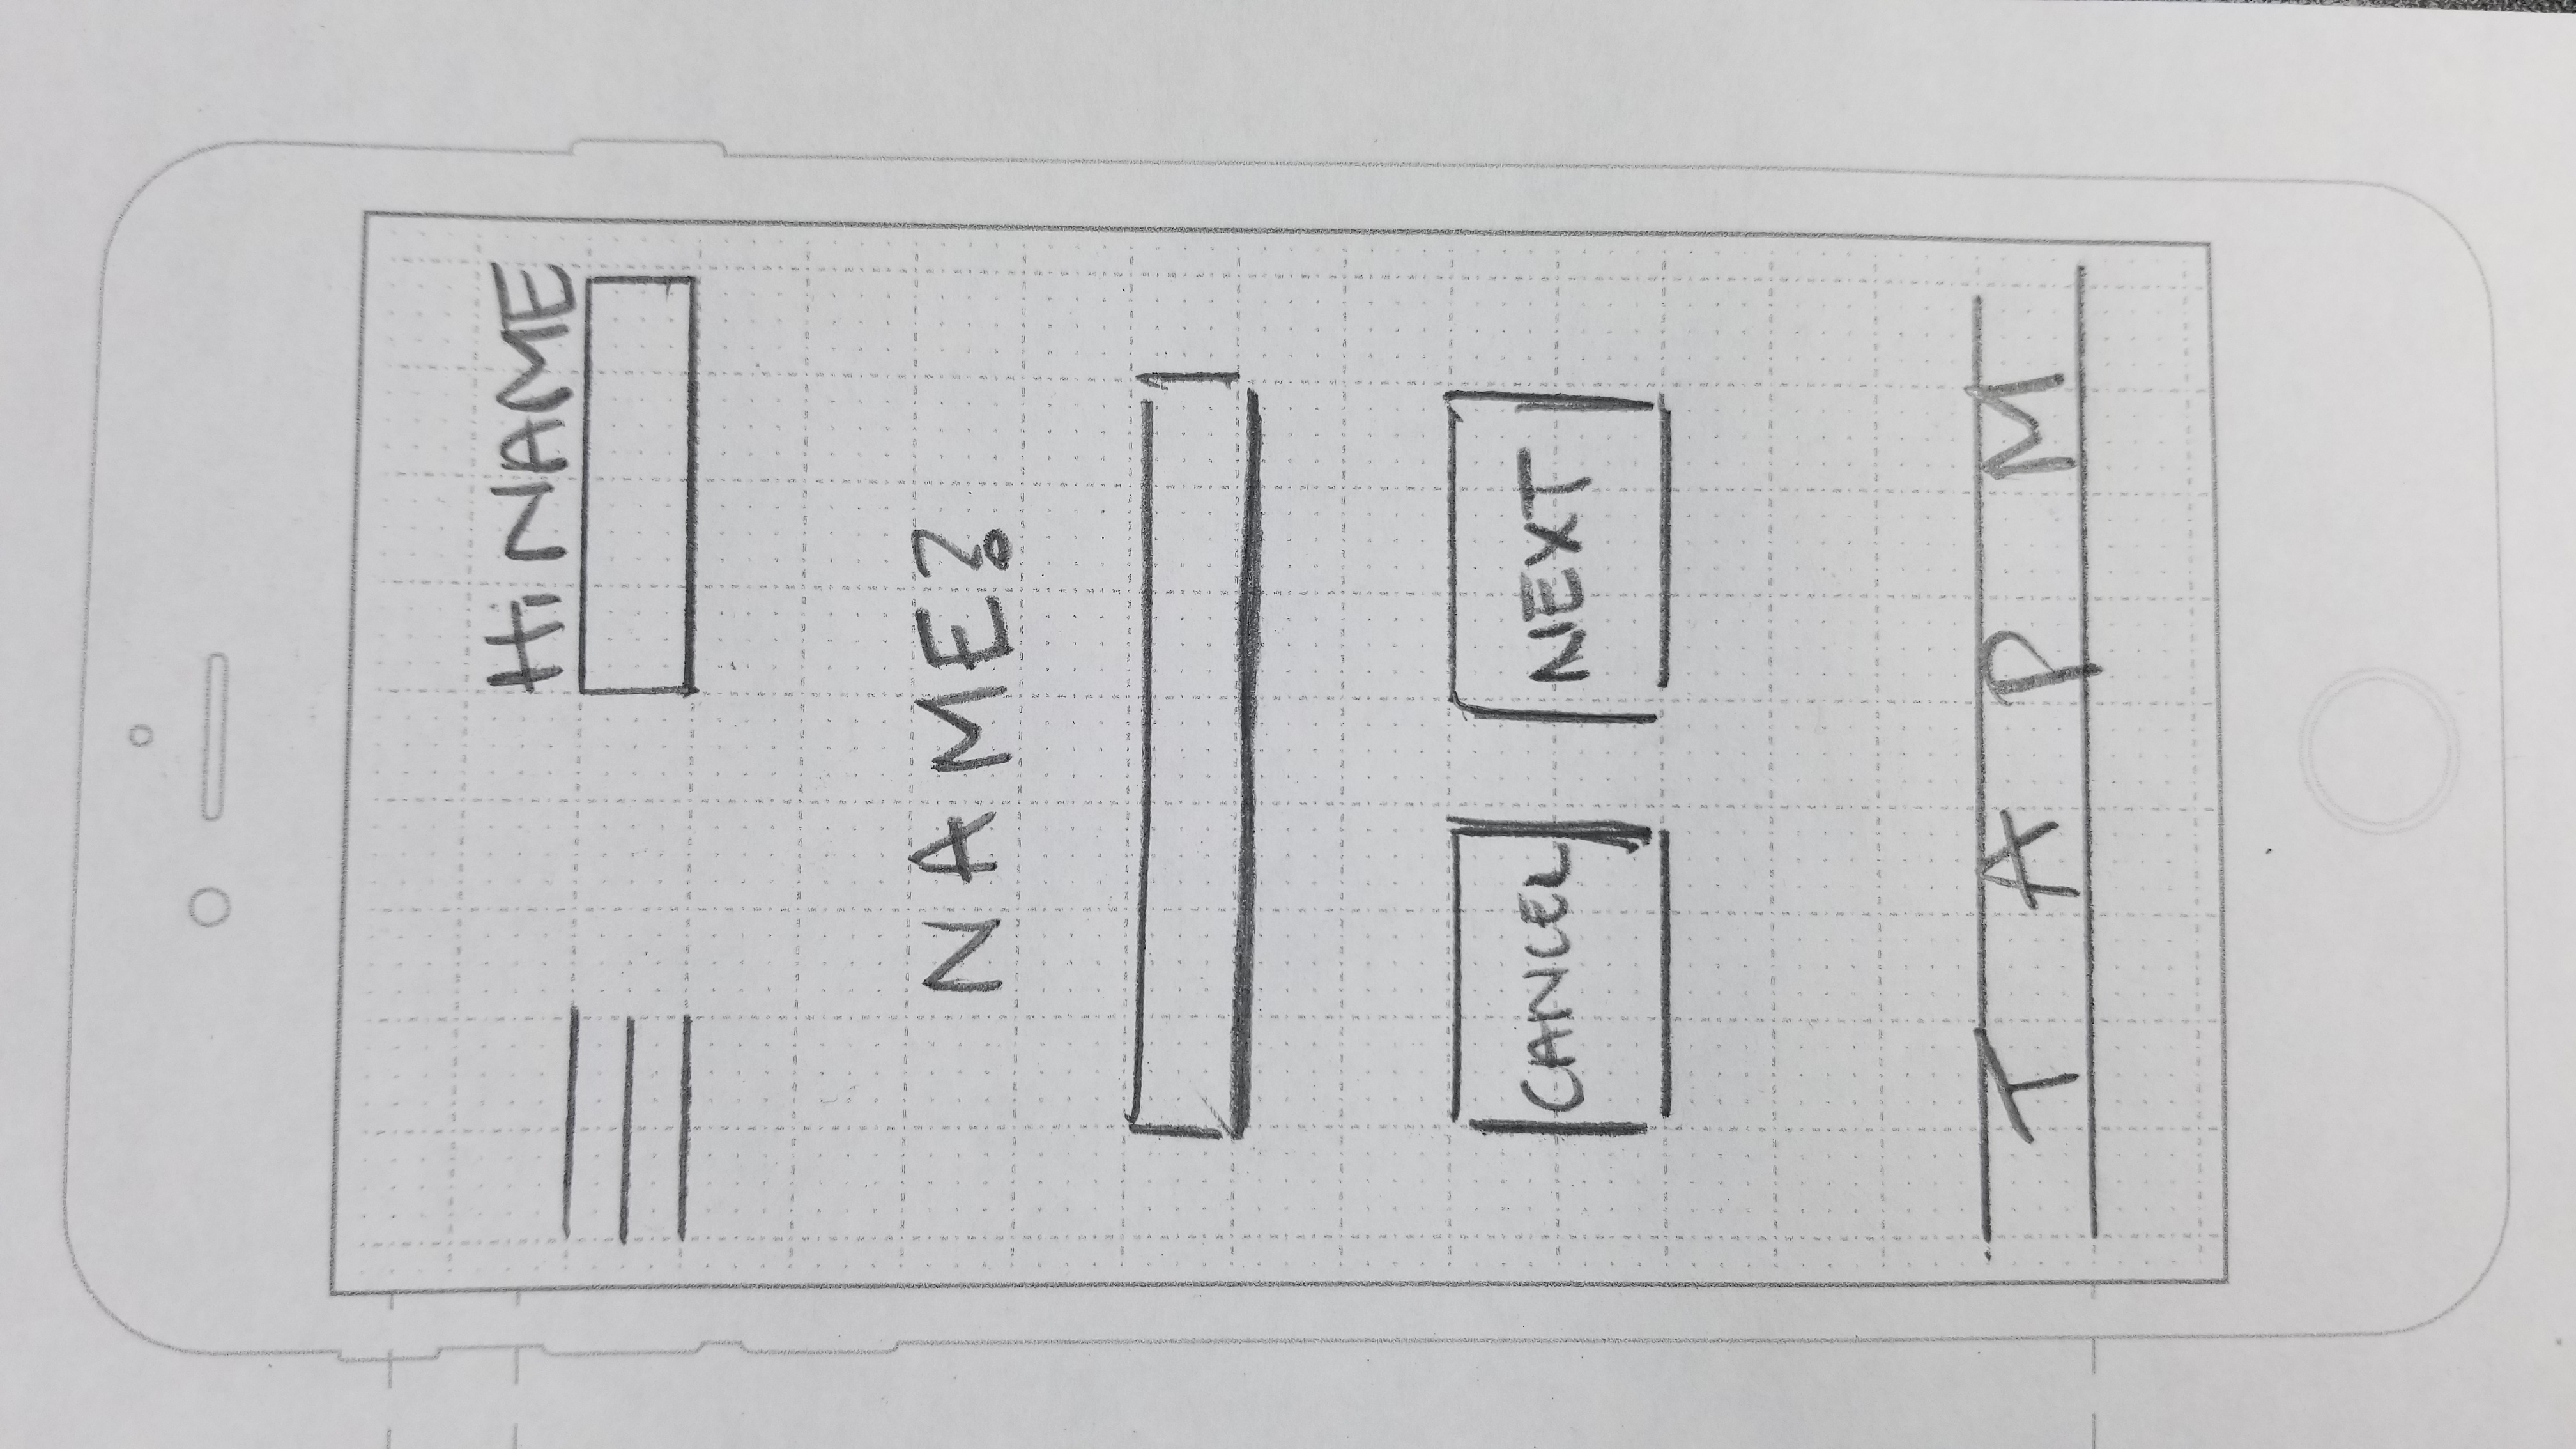 Hi NAME
NAME?
CANCEL
NEXT
T A P M